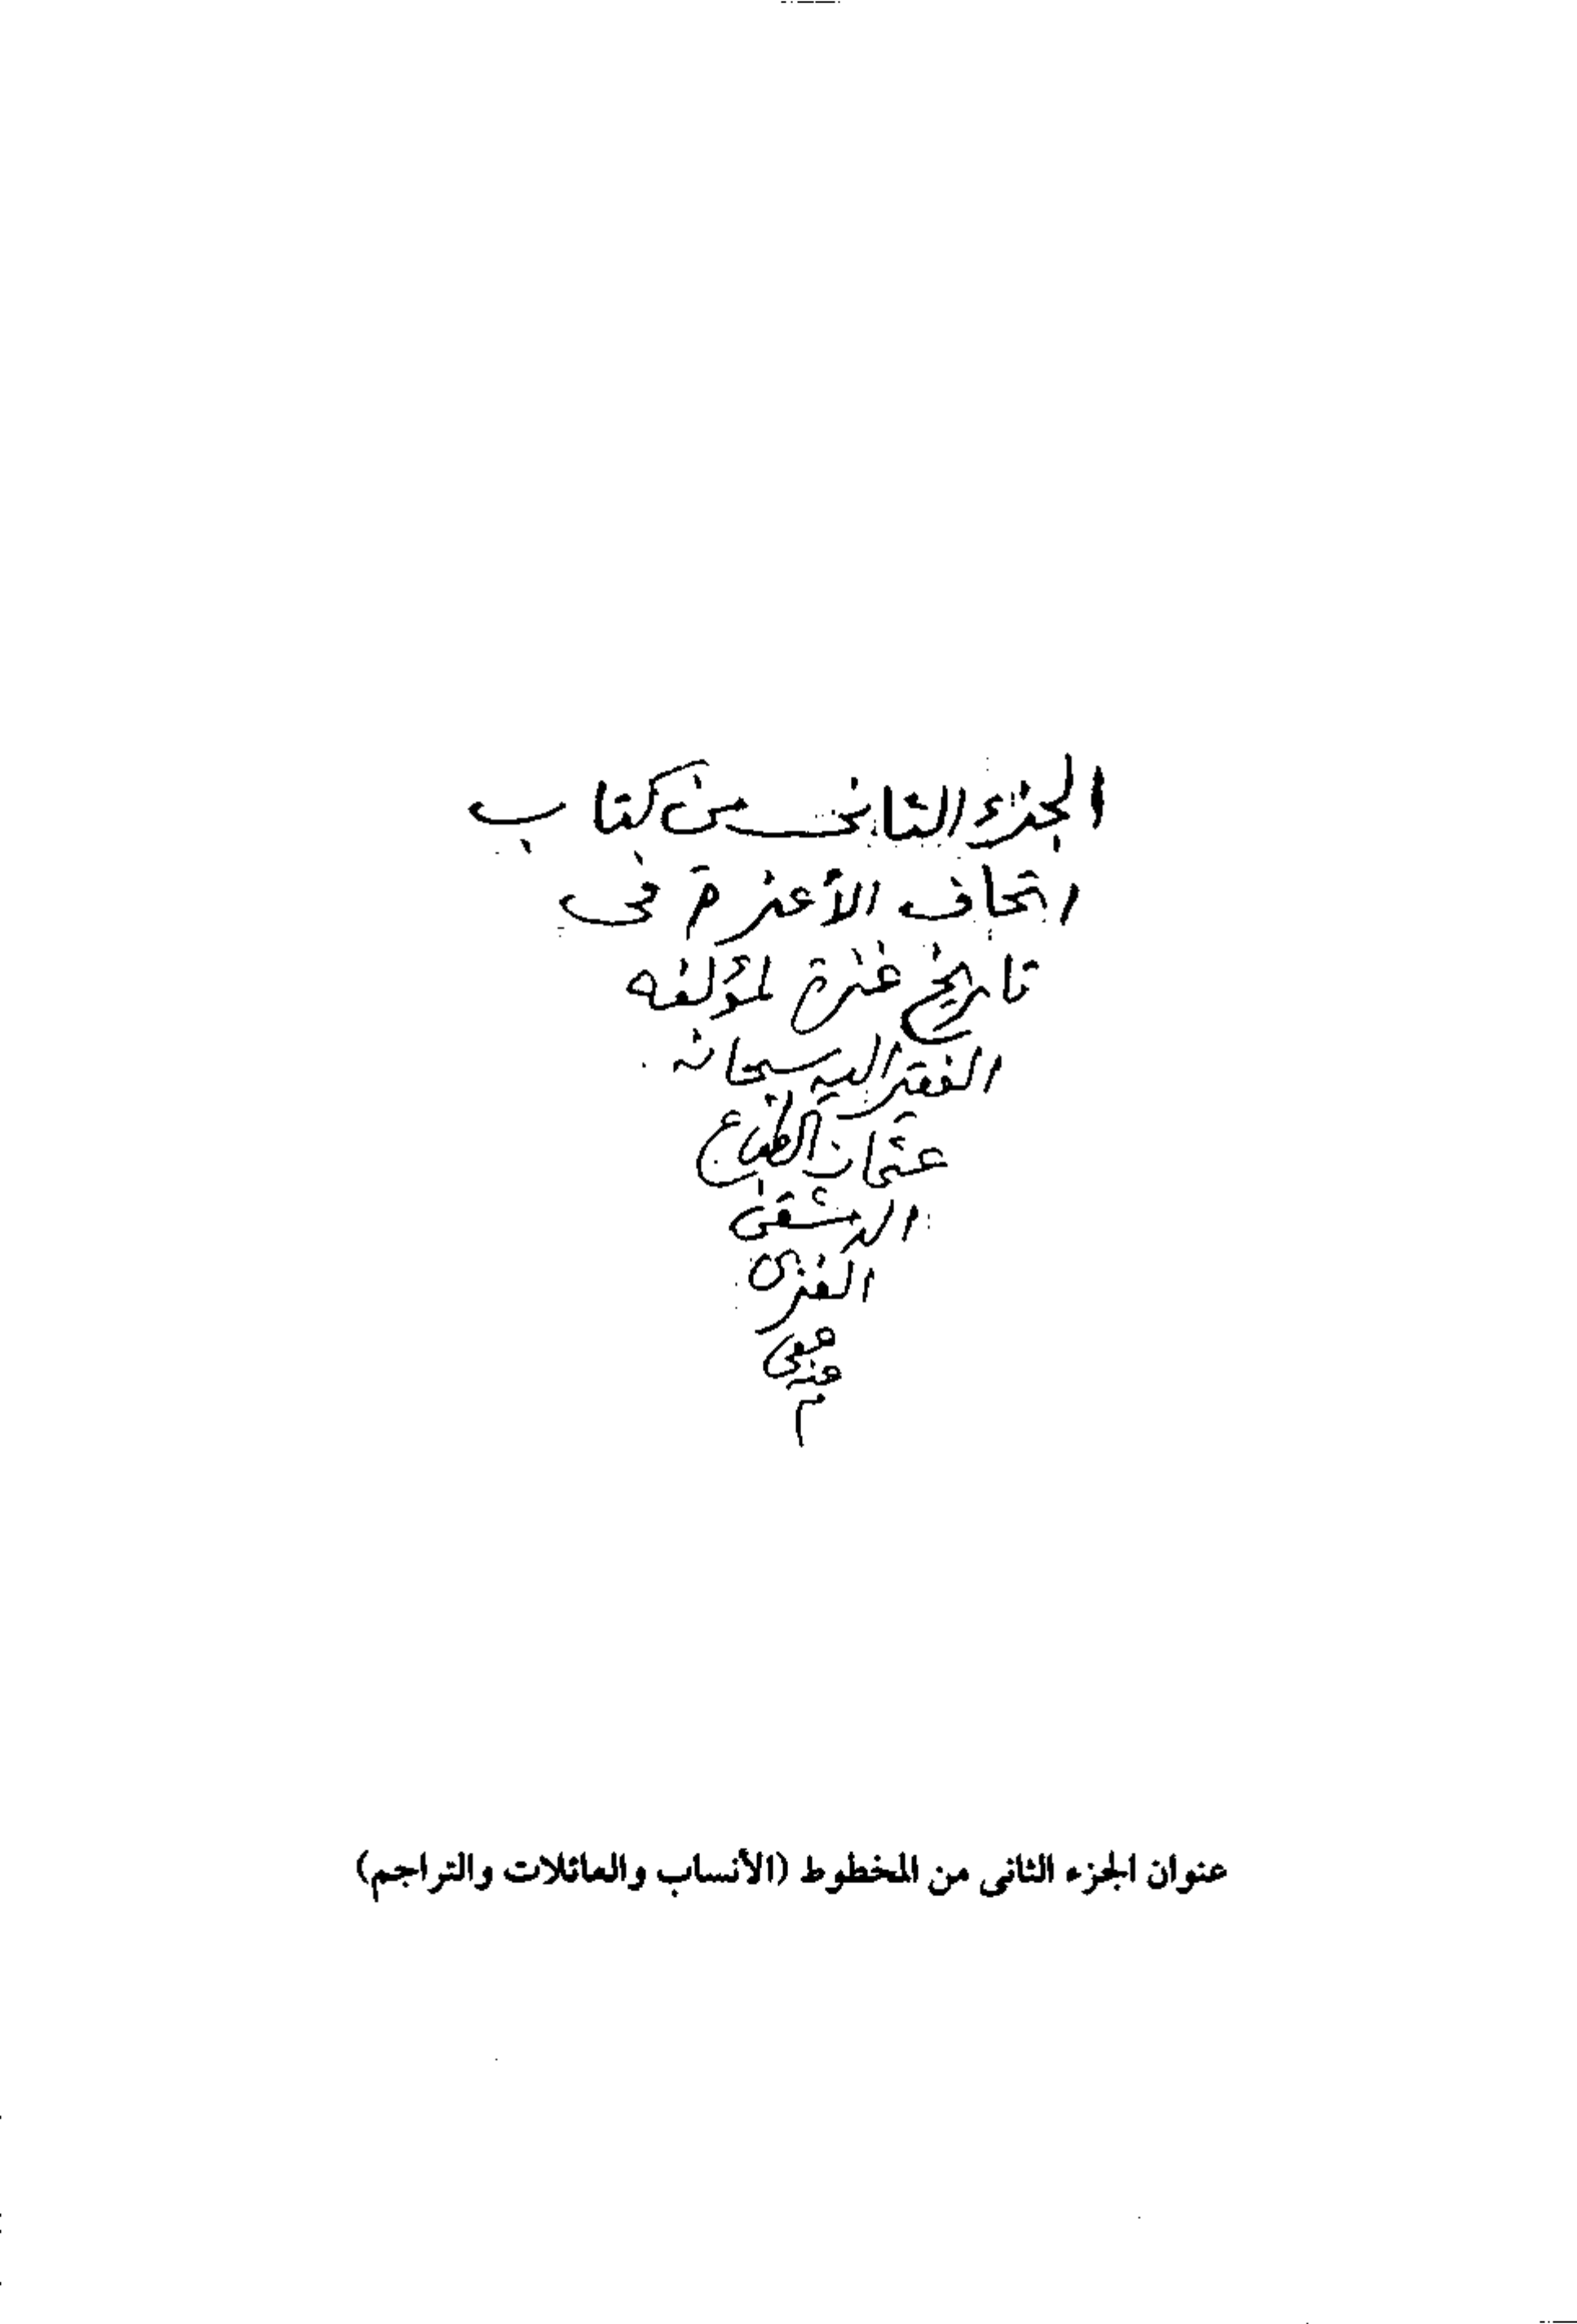 الجزء الثانى من كتاب
اتحاف الأعزة فى
تاريخ غزة لمؤلفه
الفقير اليه سبحانه
عثمان الطباع
الدمشقى
الغزى
عفى
عنه
م
عنوان الجزء الثانى من المخطوط (الأنساب والعائلات والتراجم)